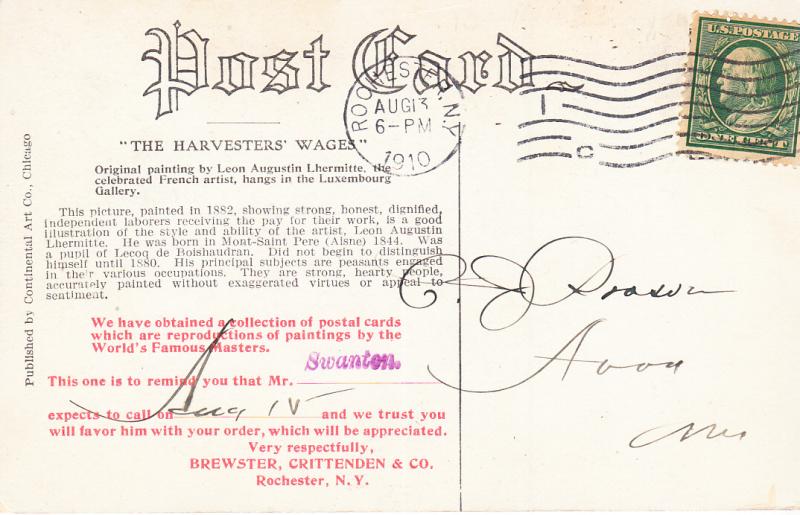 Post Card
ROCHESTER, N.Y.
AUG 13
6-PM
1910
U.S. POSTAGE
ONE CENT
"THE HARVESTERS' WAGES"
Original painting by Leon Augustin Lhermitte, the
celebrated French artist, hangs in the Luxembourg
Gallery.
This picture, painted in 1882, showing strong, honest, dignified,
independent laborers receiving the pay for their work, is a good
illustration of the style and ability of the artist, Leon Augustin
Lhermitte. He was born in Mont-Saint Pere (Aisne) 1844. Was
a pupil of Lecoq de Boishaudran. Did not begin to distinguish
himself until 1880. His principal subjects are peasants engaged
in their various occupations. They are strong, hearty people,
accurately painted without exaggerated virtues or appeal to
sentiment.
Published by Continental Art Co., Chicago
We have obtained a collection of postal cards
which are reproductions of paintings by the
World's Famous Masters.
This one is to remind you that Mr. Swanton.
expects to call on Aug 15 and we trust you
will favor him with your order, which will be appreciated.
Very respectfully,
BREWSTER, CRITTENDEN & CO.
Rochester, N. Y.
C. J.
Avoca